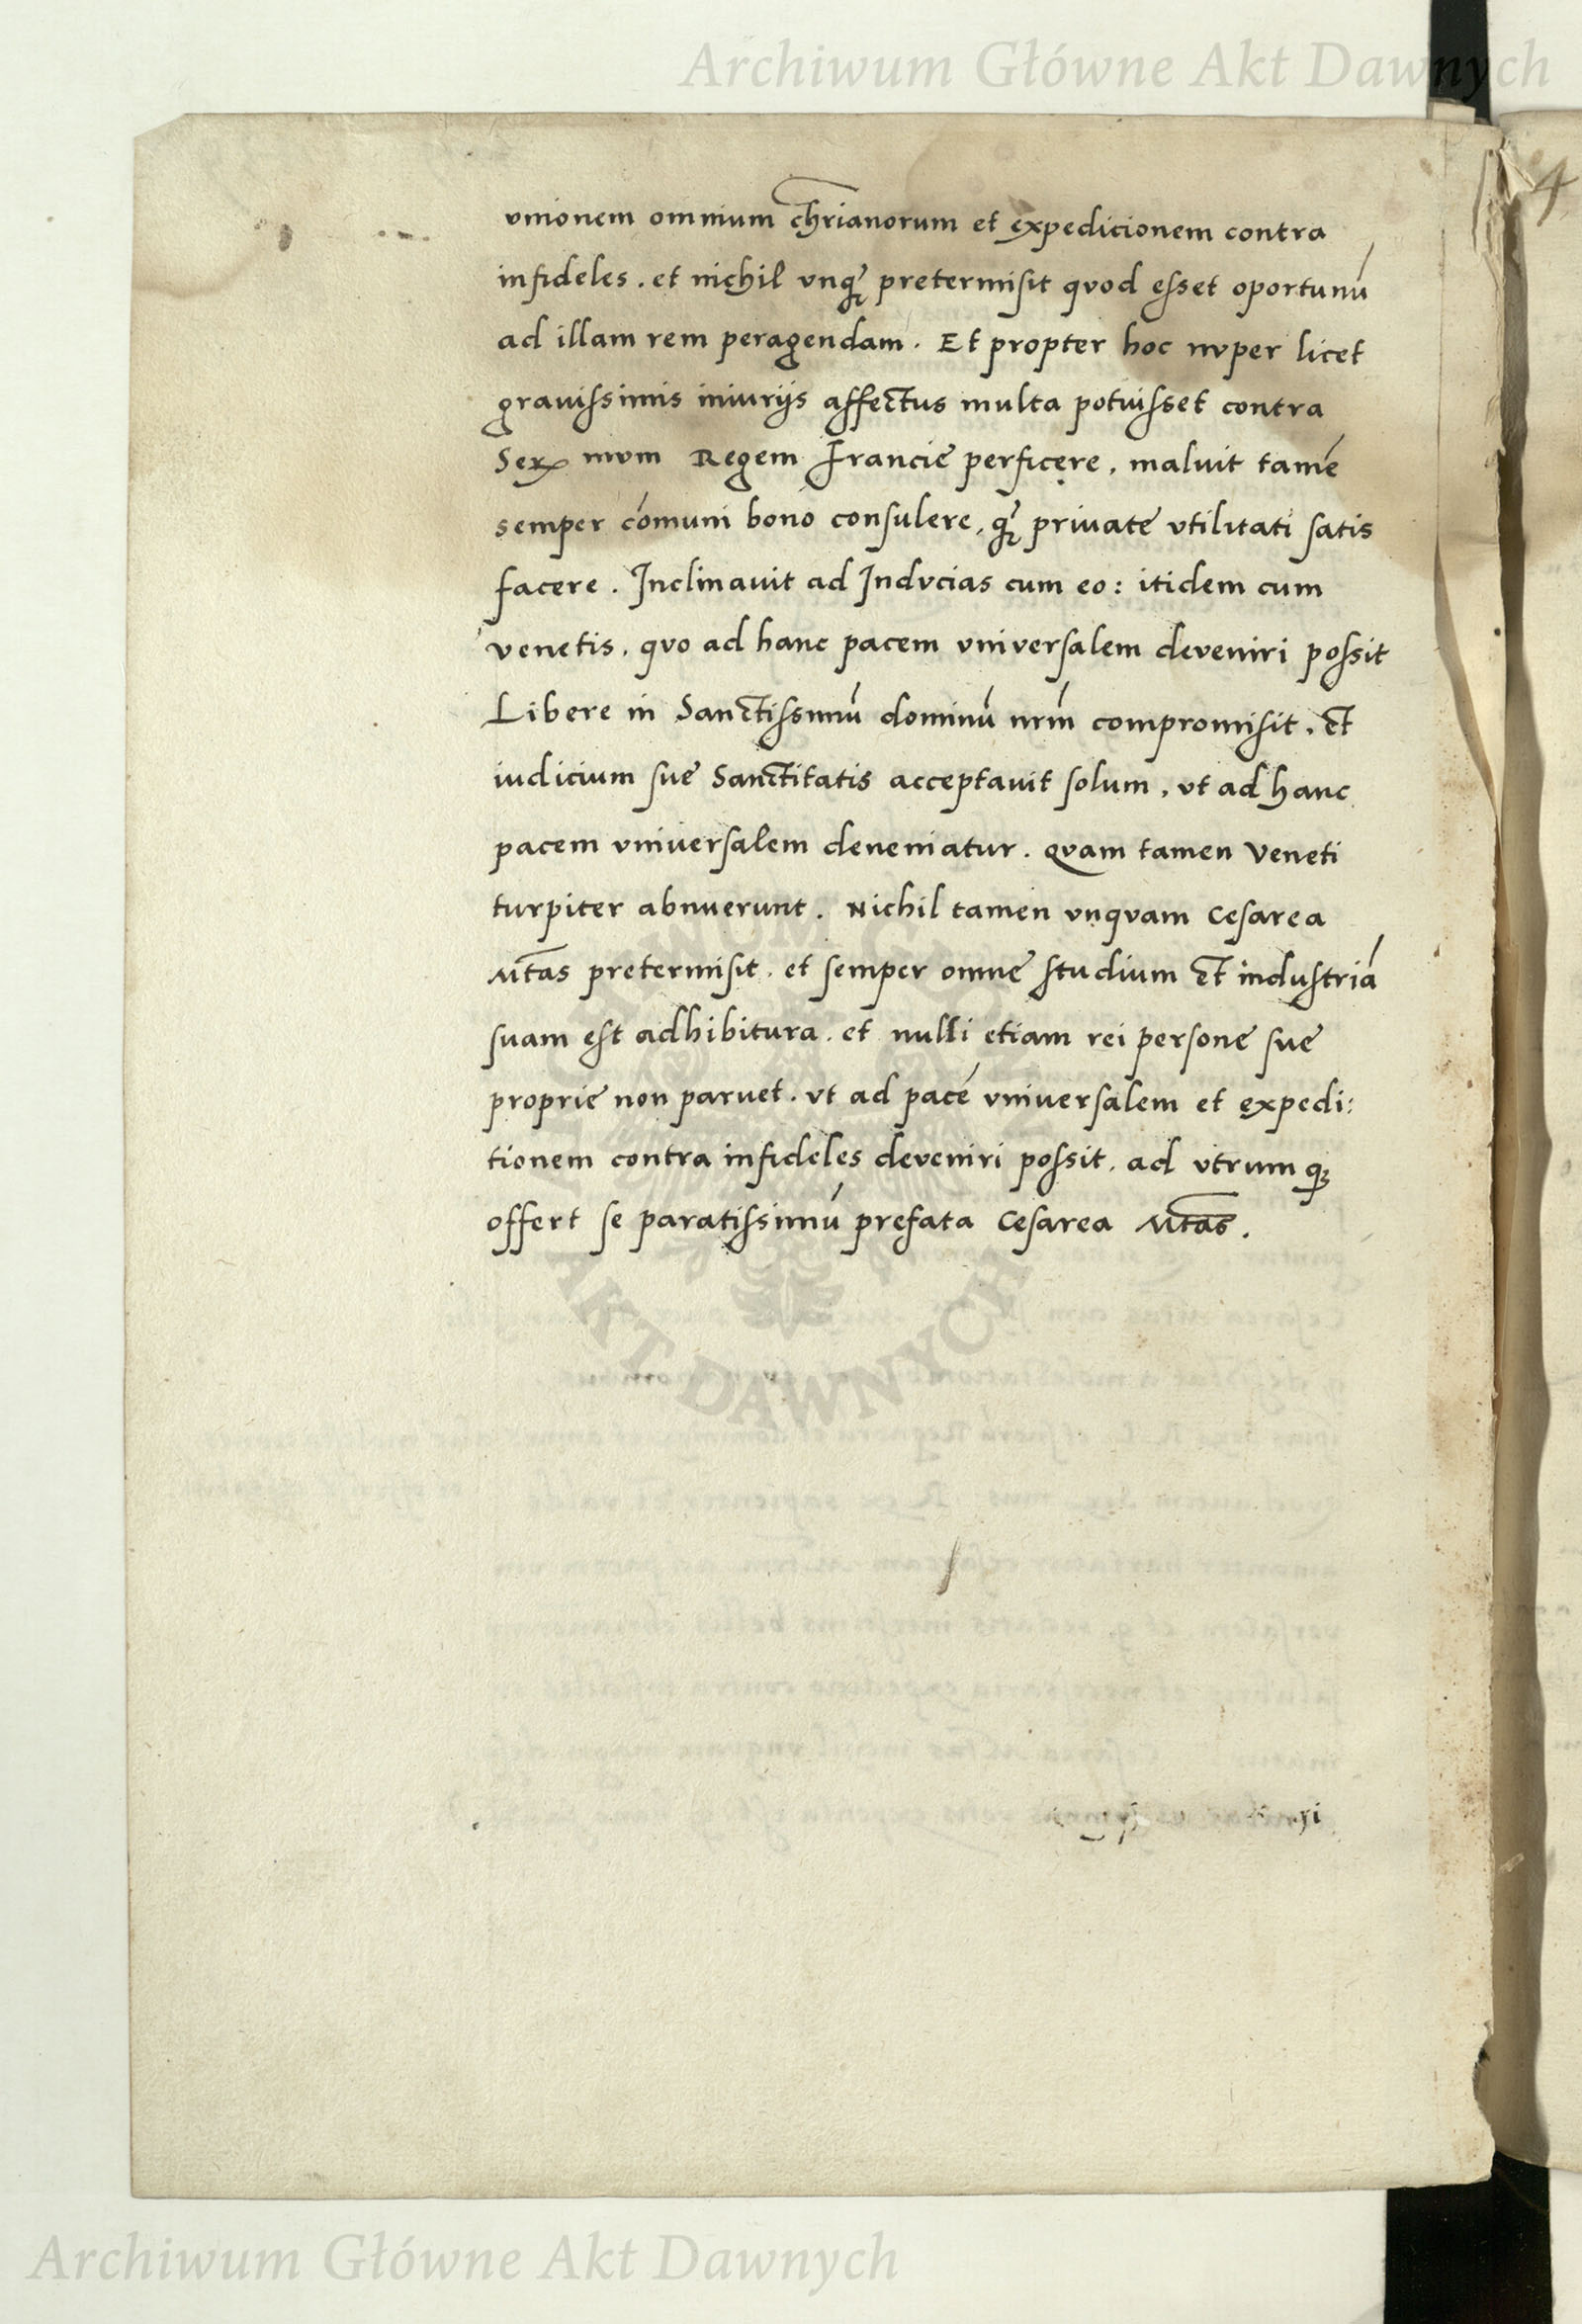 Archiwum Główne Akt Dawnych
4
vnionem omnium chrianorum et expedicionem contra
infideles . et nichil vnqȝ pretermisit quod esset oportunū
ad illam rem peragendam . Et propter hoc nuper licet
grauissimis iniurijs affectus multa potuisset contra
Ser mum Regem Francie perficere , maluit tamē
semper cōmuni bono consulere , qȝ priuate vtilitati satis
facere . Inclinauit ad Inducias cum eo : itidem cum
venetis , quo ad hanc pacem vniversalem deveniri possit
Libere in Sanctissimū dominū nrm̄ compromisit . et
iudicium sue Sanctitatis acceptauit solum , vt ad hanc
pacem vniuersalem deueniatur . Quam tamen Veneti
turpiter abnuerunt . Nichil tamen vnquam Cesarea
Mtas pretermisit . et semper omne studium et industriā
suam est adhibitura . et nulli etiam rei persone sue
proprie non paruet . vt ad pacē vniuersalem et expedi:
tionem contra infideles deveniri possit , ad vtrumqȝ
offert se paratissimū prefata Cesarea Mtas .
AKT DAWNYCH
Archiwum Główne Akt Dawnych